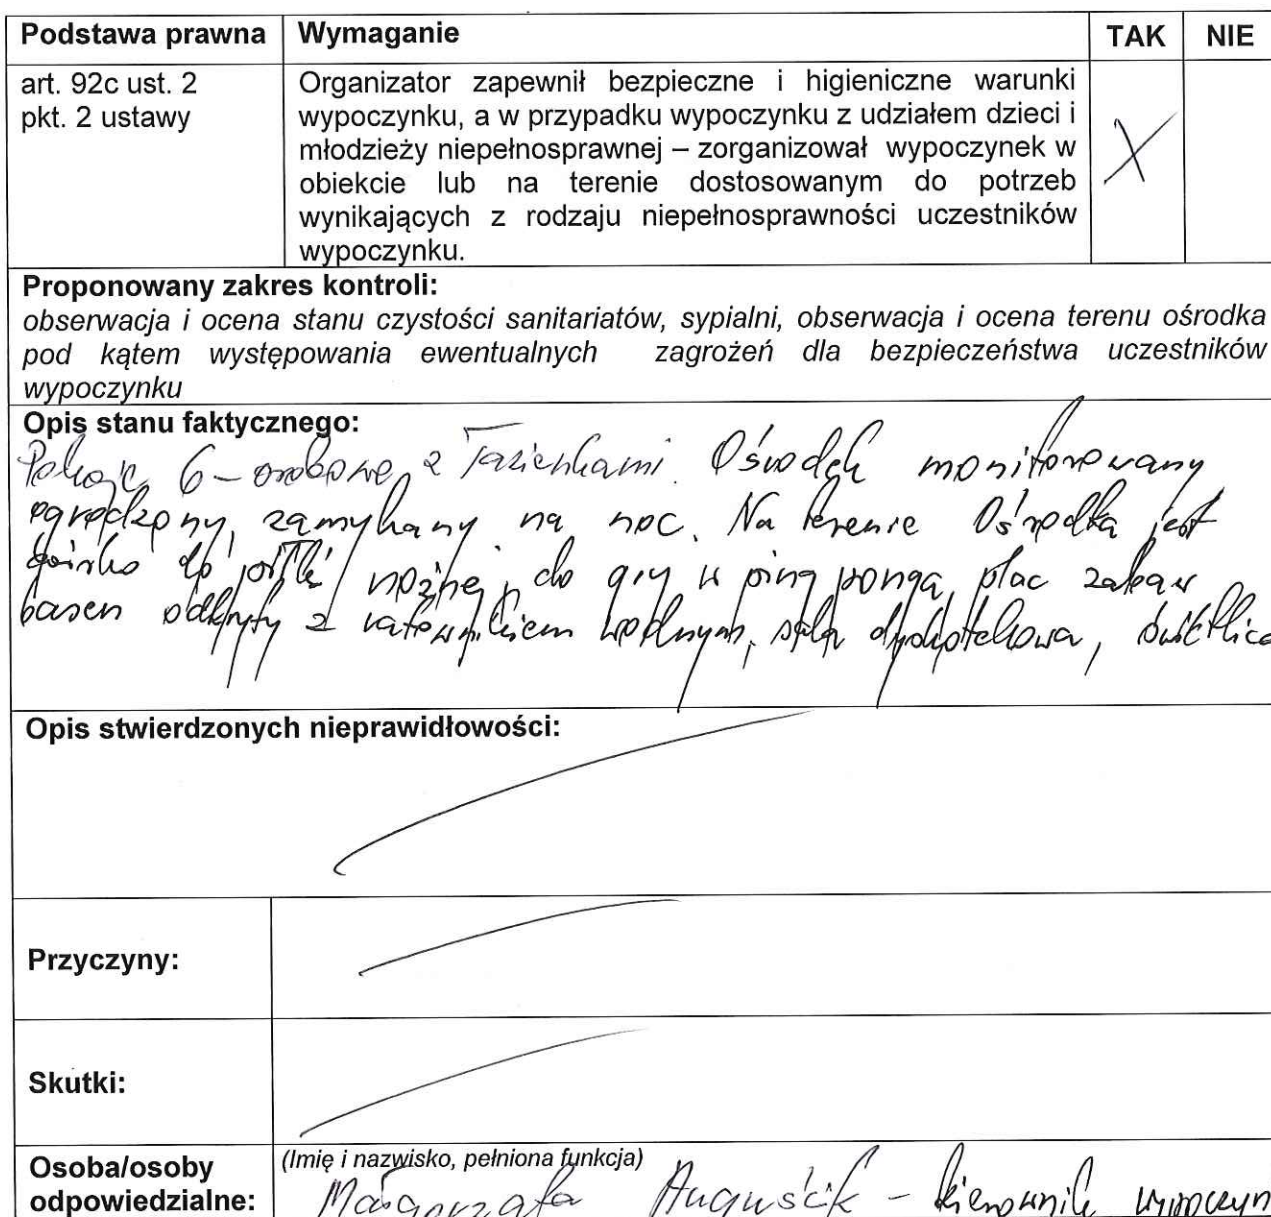 Podstawa prawna Wymaganie TAK NIE
art. 92c ust. 2 Organizator zapewnił bezpieczne i higieniczne warunki
pkt. 2 ustawy wypoczynku, a w przypadku wypoczynku z udziałem dzieci i
młodzieży niepełnosprawnej – zorganizował wypoczynek w
obiekcie lub na terenie dostosowanym do potrzeb
wynikających z rodzaju niepełnosprawności uczestników
wypoczynku.
X
Proponowany zakres kontroli:
obserwacja i ocena stanu czystości sanitariatów, sypialni, obserwacja i ocena terenu ośrodka
pod kątem występowania ewentualnych zagrożeń dla bezpieczeństwa uczestników
wypoczynku
Opis stanu faktycznego:
Pokoje 6-osobowe z łazienkami. Ośrodek monitorowany
ogrodzony, zamykany na noc. Na terenie Ośrodka jest
boisko do piłki nożnej, do gry w ping ponga, plac zabaw
basen odkryty z ratownikiem wodnym, sala dyskotekowa, świetlica
Opis stwierdzonych nieprawidłowości:
Przyczyny:
Skutki:
Osoba/osoby (Imię i nazwisko, pełniona funkcja)
odpowiedzialne: Małgorzata Auguścik - kierownik wypoczyn